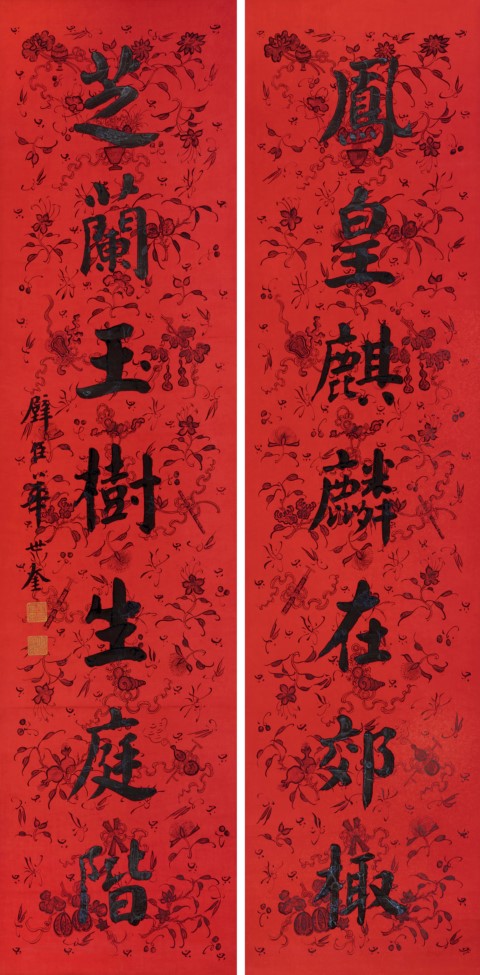 鳳皇麒麟在郊棷
芝蘭玉樹生庭階
璧臣華世奎